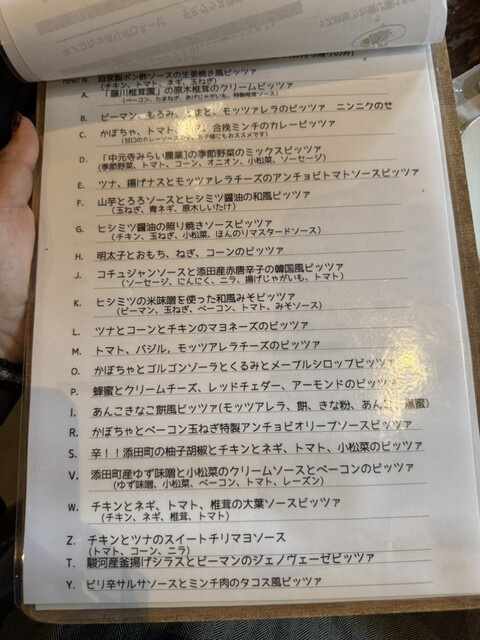 N. 自家製ポン酢ソースの生姜焼き風ピッツァ
(チキン、トマト、ネギ、玉ねぎ)
A. 「藤川椎茸園」の原木椎茸のクリームピッツァ
(ベーコン、たまねぎ、あげじゃがいも、特製椎茸ソース)
B. ピーマン、もろみ、とまと、モッツァレラのピッツァ ニンニクのせ
C. かぼちゃ、トマト、合挽ミンチのカレーピッツァ
D. 「中元寺みらい農業」の季節野菜のミックスピッツァ
(季節野菜、トマト、コーン、オニオン、小松菜、ソーセージ)
E. ツナ、揚げナスとモッツァレラチーズのアンチョビトマトソースピッツァ
F. 山芋とろろソースとヒシミツ醤油の和風ピッツァ
(玉ねぎ、青ネギ、原木しいたけ)
G. ヒシミツ醤油の照り焼きソースピッツァ
(チキン、玉ねぎ、小松菜、ほんのりマスタードソース)
H. 明太子とおもち、ねぎ、コーンのピッツァ
J. コチュジャンソースと添田産赤唐辛子の韓国風ピッツァ
(ソーセージ、にんにく、ニラ、揚げじゃがいも、トマト)
K. ヒシミツの米味噌を使った和風みそピッツァ
(ピーマン、玉ねぎ、ベーコン、トマト、みそソース)
L. ツナとコーンとチキンのマヨネーズのピッツァ
M. トマト、バジル，モッツァレラチーズのピッツァ
O. かぼちゃとゴルゴンゾーラとくるみとメープルシロップピッツァ
P. 蜂蜜とクリームチーズ、レッドチェダー、アーモンドのピッツァ
I. あんこきなこ餅風ピッツァ(モッツァレラ、餅、きな粉、あんこ、黒蜜)
R. かぼちゃとベーコン玉ねぎ特製アンチョビオリーブソースピッツァ
S. 辛！！添田町の柚子胡椒とチキンとネギ、トマト、小松菜のピッツァ
V. 添田町産ゆず味噌と小松菜のクリームソースとベーコンのピッツァ
(ゆず味噌、小松菜、ベーコン、トマト、レーズン)
W. チキンとネギ、トマト、椎茸の大葉ソースピッツァ
(チキン、ネギ、椎茸、トマト)
Z. チキンとツナのスイートチリマヨソース
(トマト、コーン、ニラ)
T. 駿河産釜揚げシラスとピーマンのジェノヴェーゼピッツァ
Y. ピリ辛サルサソースとミンチ肉のタコス風ピッツァ